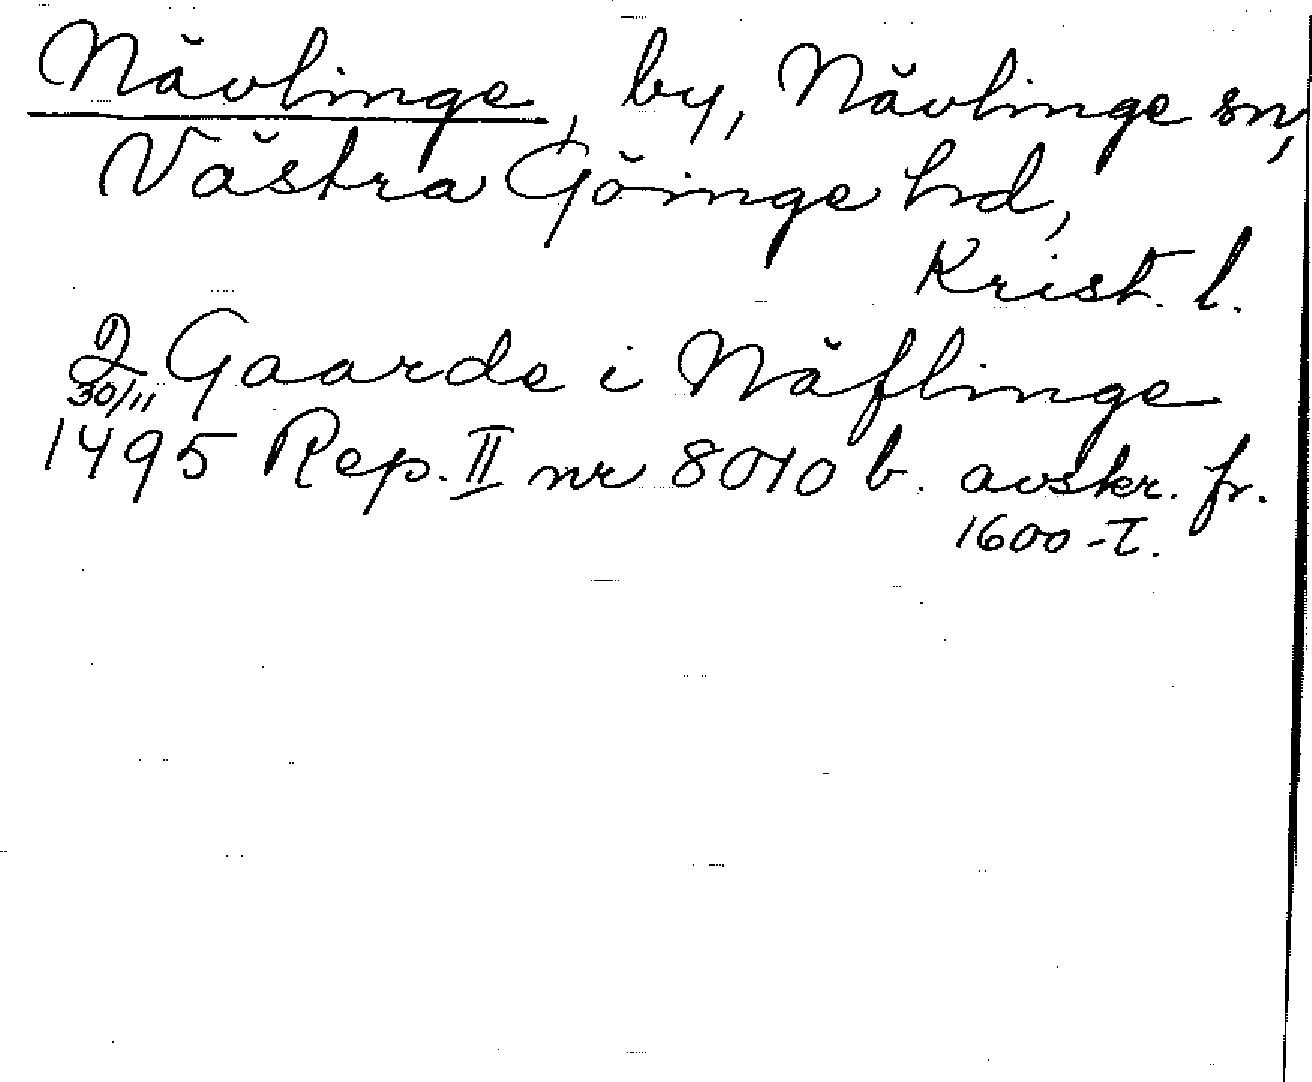 Nävlinge, by, Nävlinge sn,
Västra Göinge hd,
Krist. l.
2 Gaarde i Näflinge
30/11
1495 Rep. II nr 8010 b. avskr. fr.
1600-T.